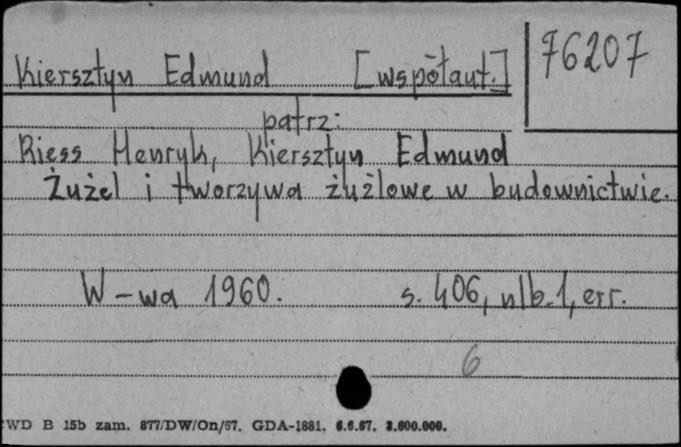 76207
Kiersztyn Edmund [współaut.]
patrz:
Riess Henryk, Kiersztyn Edmund
Żużel i tworzywa żużlowe w budownictwie.
W-wa 1960. s. 406, nlb. 1, err.
6
WD B 15b zam. 877/DW/On/67. GDA-1881. 6.6.67. 3.600.000.